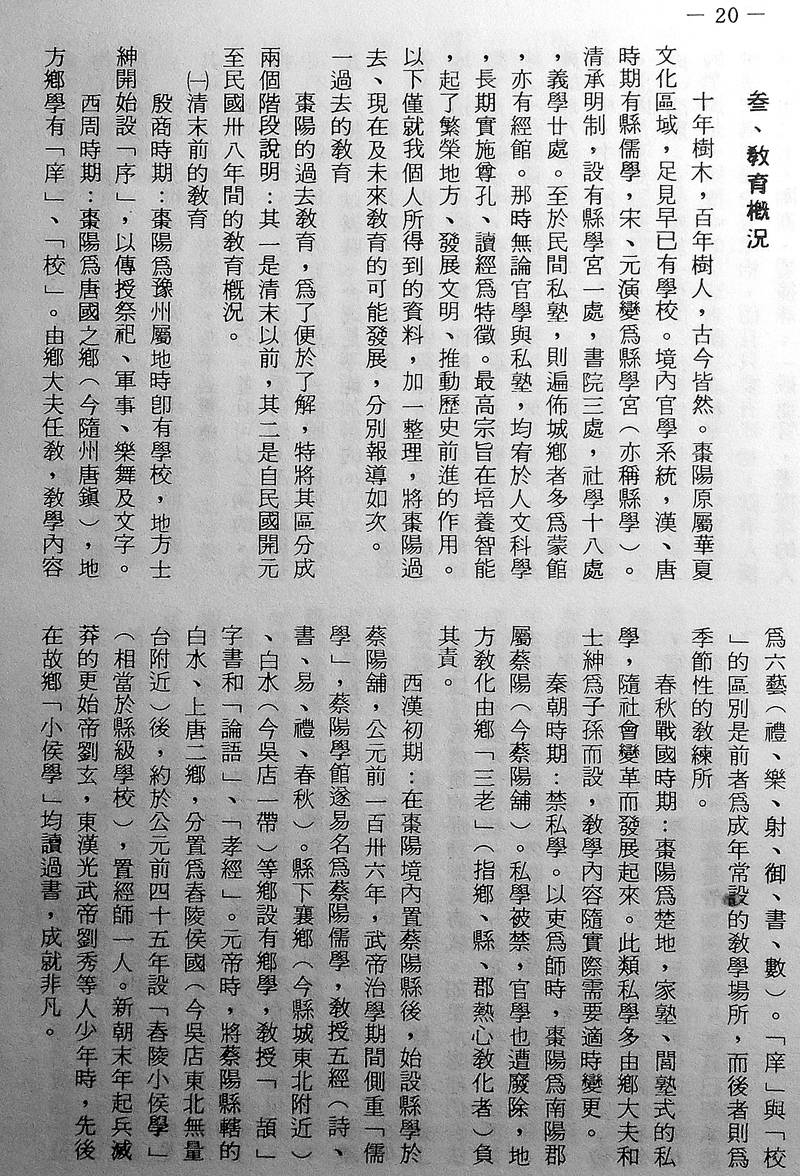 — 20 —
叁、教育概況
十年樹木，百年樹人，古今皆然。棗陽原屬華夏
文化區域，足見早已有學校。境內官學系統，漢、唐
時期有縣儒學，宋、元演變為縣學宮（亦稱縣學）。
清承明制，設有縣學宮一處，書院三處，社學十八處
，義學廿處。至於民間私塾，則遍佈城鄉者多為蒙館
，亦有經館。那時無論官學與私塾，均宥於人文科學
，長期實施尊孔、讀經為特徵。最高宗旨在培養智能
，起了繁榮地方、發展文明、推動歷史前進的作用。
以下僅就我個人所得到的資料，加一整理，將棗陽過
去、現在及未來教育的可能發展，分別報導如次。
一過去的教育
棗陽的過去教育，為了便於了解，特將其區分成
兩個階段說明：其一是清末以前，其二是自民國開元
至民國卅八年間的教育概況。
㈠清末前的教育
殷商時期：棗陽為豫州屬地時卽有學校，地方士
紳開始設「序」，以傳授祭祀、軍事、樂舞及文字。
西周時期：棗陽為唐國之鄉（今隨州唐鎮），地
方鄉學有「庠」、「校」。由鄉大夫任教，教學內容
為六藝（禮、樂、射、御、書、數）。「庠」與「校
」的區別是前者為成年常設的教學場所，而後者則為
季節性的教練所。
春秋戰國時期：棗陽為楚地，家塾、閭塾式的私
學，隨社會變革而發展起來。此類私學多由鄉大夫和
士紳為子孫而設，教學內容隨實際需要適時變更。
秦朝時期：禁私學。以吏為師時，棗陽為南陽郡
屬蔡陽（今蔡陽舖）。私學被禁，官學也遭廢除，地
方教化由鄉「三老」（指鄉、縣、郡熱心教化者）負
其責。
西漢初期：在棗陽境內置蔡陽縣後，始設縣學於
蔡陽舖，公元前一百卅六年，武帝治學期間側重「儒
學」，蔡陽學館遂易名為蔡陽儒學，教授五經（詩、
書、易、禮、春秋）。縣下襄鄉（今縣城東北附近）
、白水（今吳店一帶）等鄉設有鄉學，教授「　頡」
字書和「論語」、「孝經」。元帝時，將蔡陽縣轄的
白水、上唐二鄉，分置為舂陵侯國（今吳店東北無量
台附近）後，約於公元前四十五年設「舂陵小侯學」
（相當於縣級學校），置經師一人。新朝末年起兵滅
莽的更始帝劉玄，東漢光武帝劉秀等人少年時，先後
在故鄉「小侯學」均讀過書，成就非凡。